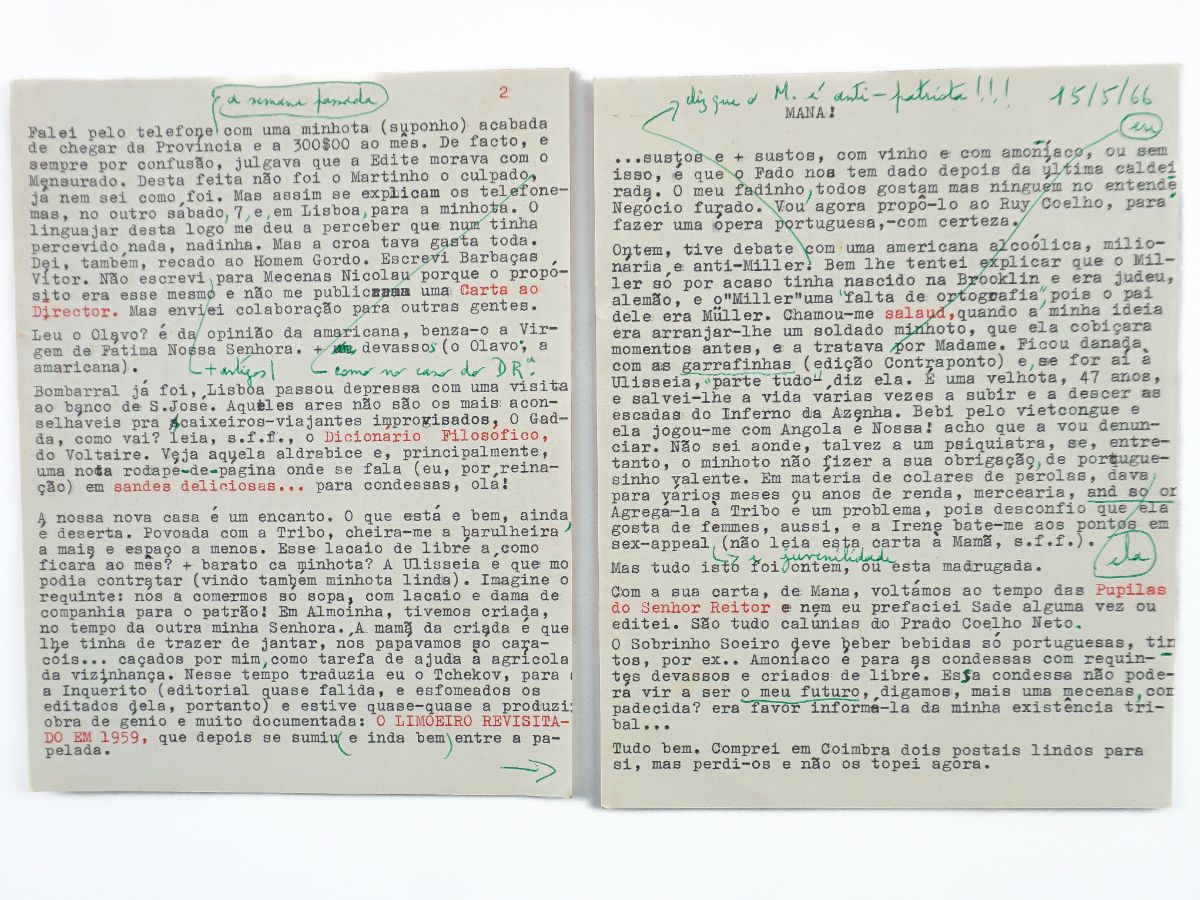 a semana passada
2
Falei pelo telefone com uma minhota (suponho) acabada
de chegar da Província e a 300$00 ao mês. De facto, e
sempre por confusão, julgava que a Edite morava com o
Mensurado. Desta feita não foi o Martinho o culpado,
já nem sei como foi. Mas assim se explicam os telefone-
mas, no outro sábado, 7, e, em Lisboa, para a minhota. O
linguajar desta logo me deu a perceber que num tinha
percevido nada, nadinha. Mas a croa tava gasta toda.
Dei, também, recado ao Homem Gordo. Escrevi Barbaças
Vítor. Não escrevi para Mecenas Nicolau porque o propó-
sito era esse mesmo e não me public uma Carta ao
Director. Mas enviei colaboração para outras gentes.
Leu o Olavo? é da opinião da amaricana, benza-o a Vir-
gem de Fátima Nossa Senhora. + devassos (o Olavo, a
amaricana).
+ antigos
como no caso do DR.ª
Bombarral já foi, Lisboa passou depressa com uma visita
ao banco de S.José. Aqueles ares não são os mais acon-
selháveis pra caixeiros-viajantes improvisados, O Gad-
da, como vai? leia, s.f.f., o Dicionário Filosófico,
do Voltaire. Veja aquela aldrabice e, principalmente,
uma nota rodape-de-pagina onde se fala (eu, por reina-
ção) em sandes deliciosas... para condessas, olá!
A nossa nova casa é um encanto. O que está e bem, ainda
é deserta. Povoada com a Tribo, cheira-me a barulheira
a mais e espaço a menos. Esse lacaio de libré a como
ficará ao mês? + barato ca minhota? A Ulisseia é que mo
podia contratar (vindo também minhota linda). Imagine o
requinte: nós a comermos só sopa, com lacaio e dama de
companhia para o patrão! Em Almoinha, tivemos criada,
no tempo da outra minha Senhora. A mamã da criada é que
lhe tinha de trazer de jantar, nos papávamos só cara-
cóis... caçados por mim, como tarefa de ajuda à agrícola
da vizinhança. Nesse tempo traduzia eu o Tchekov, para
a Inquérito (editorial quase falida, e esfomeados os
editados dela, portanto) e estive quase-quase a produzi
obra de génio e muito documentada: O LIMOEIRO REVISITA-
DO EM 1959, que depois se sumiu (e inda bem) entre a pa-
pelada.
diz que o M. é anti-patriota!!!
15/5/66
MANA!
eu
...sustos e + sustos, com vinho e com amoníaco, ou sem
isso, é que o Fado nos tem dado depois da última caldei
rada. O meu fadinho, todos gostam mas ninguém no entende
Negócio furado. Vou agora propô-lo ao Ruy Coelho, para
fazer uma ópera portuguesa,-com certeza.
Ontem, tive debate com uma americana alcoólica, milio-
nária e anti-Miller! Bem lhe tentei explicar que o Mil-
ler só por acaso tinha nascido na Brooklin e era judeu,
alemão, e o "Miller" uma "falta de ortografia", pois o pai
dele era Müller. Chamou-me salaud, quando a minha ideia
era arranjar-lhe um soldado minhoto, que ela cobiçara
momentos antes, e a tratava por Madame. Ficou danada
com as garrafinhas (edição Contraponto) e, se for aí à
Ulisseia, "parte tudo" diz ela. É uma velhota, 47 anos,
e salvei-lhe a vida várias vezes a subir e a descer as
escadas do Inferno da Azenha. Bebi pelo vietcongue e
ela jogou-me com Angola é Nossa! acho que a vou denun-
ciar. Não sei aonde, talvez a um psiquiatra, se, entre-
tanto, o minhoto não fizer a sua obrigação, de portugue-
sinho valente. Em matéria de colares de pérolas, dava
para vários meses ou anos de renda, mercearia, and so on
Agregá-la à Tribo é um problema, pois desconfio que ela
gosta de femmes, aussi, e a Irene bate-me aos pontos em
sex-appeal (não leia esta carta à Mamã, s.f.f.).
e juvenilidade
ela
Mas tudo isto foi ontem, ou esta madrugada.
Com a sua carta, de Mana, voltámos ao tempo das Pupilas
do Senhor Reitor e nem eu prefaciei Sade alguma vez ou
editei. São tudo calúnias do Prado Coelho Neto.
O Sobrinho Soeiro deve beber bebidas só portuguesas, tin
tos, por ex.. Amoníaco é para as condessas com requin-
tes devassos e criados de libré. Essa condessa não pode-
rá vir a ser o meu futuro, digamos, mais uma mecenas, com
padecida? era favor informá-la da minha existência tri-
bal...
Tudo bem. Comprei em Coimbra dois postais lindos para
si, mas perdi-os e não os topei agora.